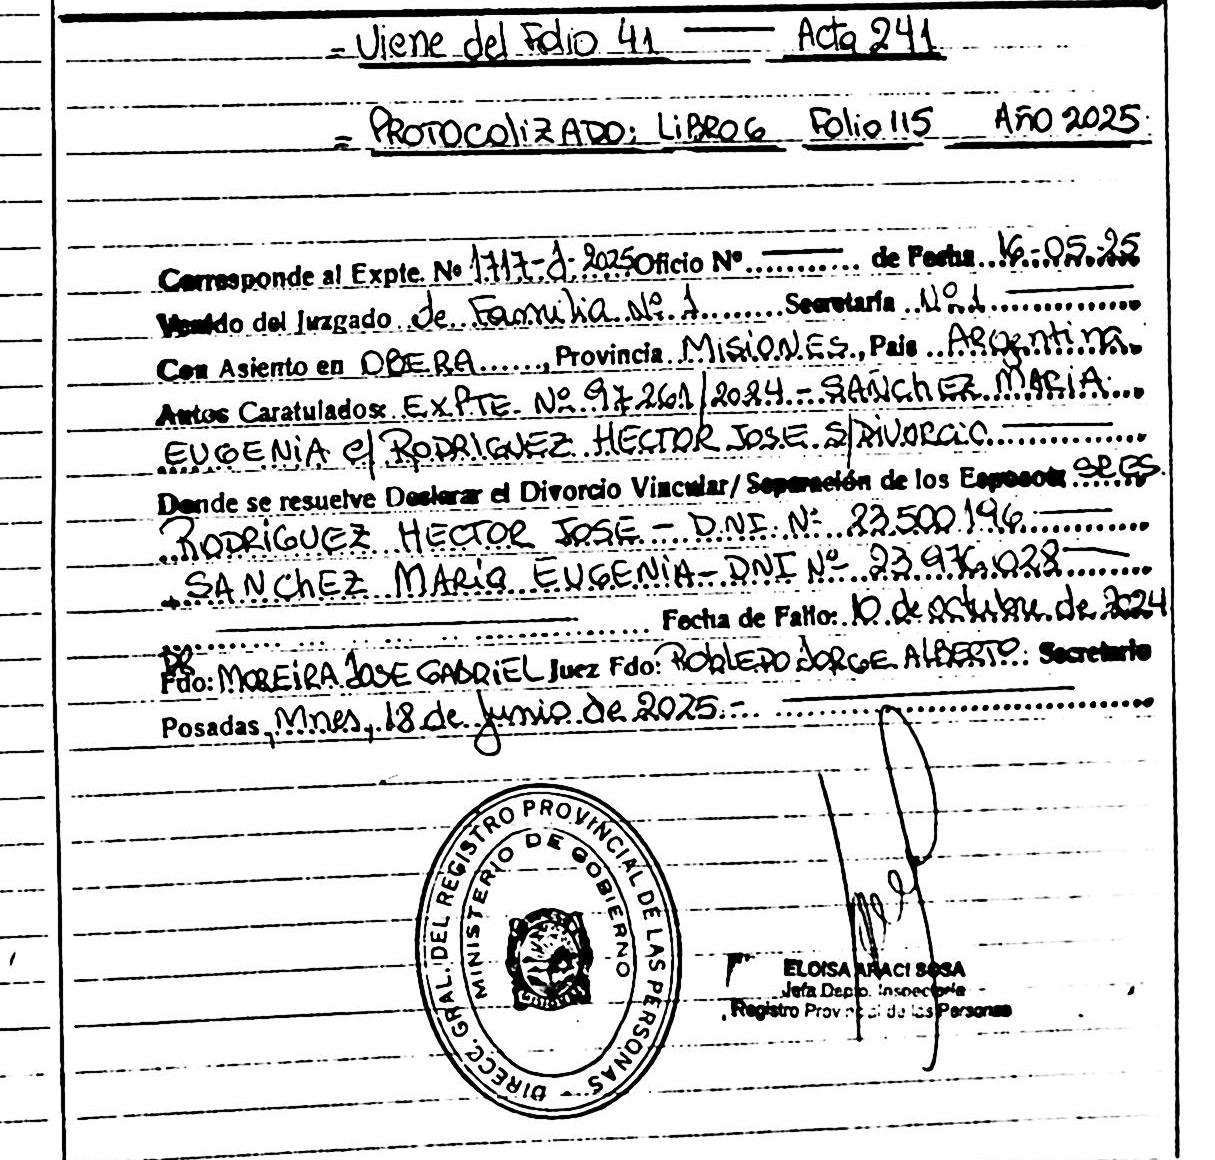 = Viene del Folio 41 — Acta 241
= PROTOCOLIZADO: LIBRO 6 Folio 115 AÑO 2025
Corresponde al Expte. Nº 1717-d-2025 Oficio Nº ——— de Fecha 16-05-25
Venido del Juzgado de Familia Nº 1 Secretaría Nº 1 ———
Con Asiento en OBERA, Provincia MISIONES, Pais Argentina.
Autos Caratulados: EXPTE. Nº 97261/2024 - SAÑCHEZ MARIA
EUGENIA c/ RODRIGUEZ HECTOR JOSE S/DIVORCIO ———
Donde se resuelve Declarar el Divorcio Vincular/Separación de los Esposos: SRES.
RODRÍGUEZ HECTOR JOSE - D.N.I. Nº 23.500.196 ———
SANCHEZ MARIA EUGENIA - DNI Nº 23.976.028 ———
——— Fecha de Fallo: 10 de octubre de 2024
DR
Fdo: MOREIRA JOSE GABRIEL Juez Fdo: ROBLEDO JORGE ALBERTO: Secretario
Posadas, Mnes, 18 de Junio de 2025.- ———
DIRECC. GRAL. DEL REGISTRO PROVINCIAL DE LAS PERSONAS -
MINISTERIO DE GOBIERNO
ELOISA ARACI SOSA
Jefa Depto. Inspectoría
Registro Provincial de las Personas